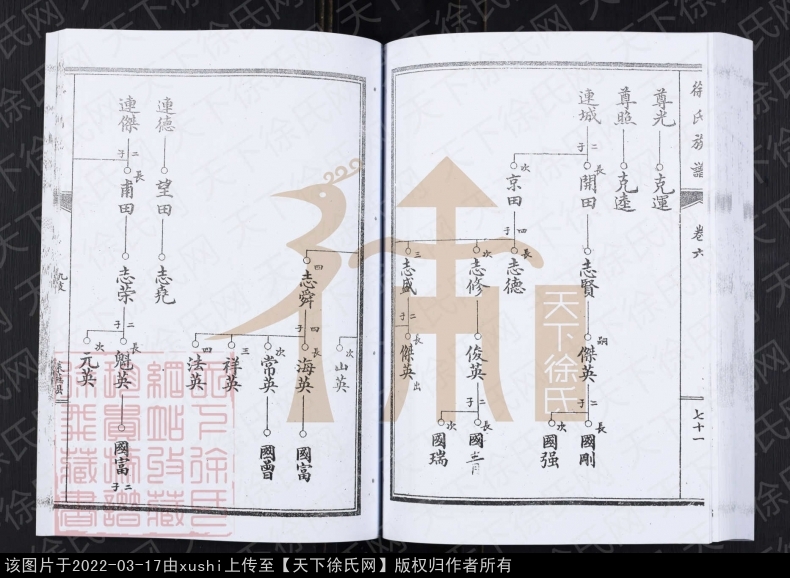 徐氏族譜 卷六 七十一
尊光 克運
尊照 克遠
連城 二子
長 開田 次 京田
志賢
嗣 傑英 二子
長 國剛 次 國强
四子
長 志德 次 志修 三 志盛 四 志舜
俊英 二子
長 國 次 國瑞
二子
長 傑英 出 次 山英
四子
長 海英 次 常英 三 祥英 四 法英
國富 國曾
連德 望田 志堯
連傑 二子
長 甫田
志荣 二子
長 魁英 次 元英
國富 二子
九支
天下徐氏
该图片于2022-03-17由xushi上传至【天下徐氏网】版权归作者所有